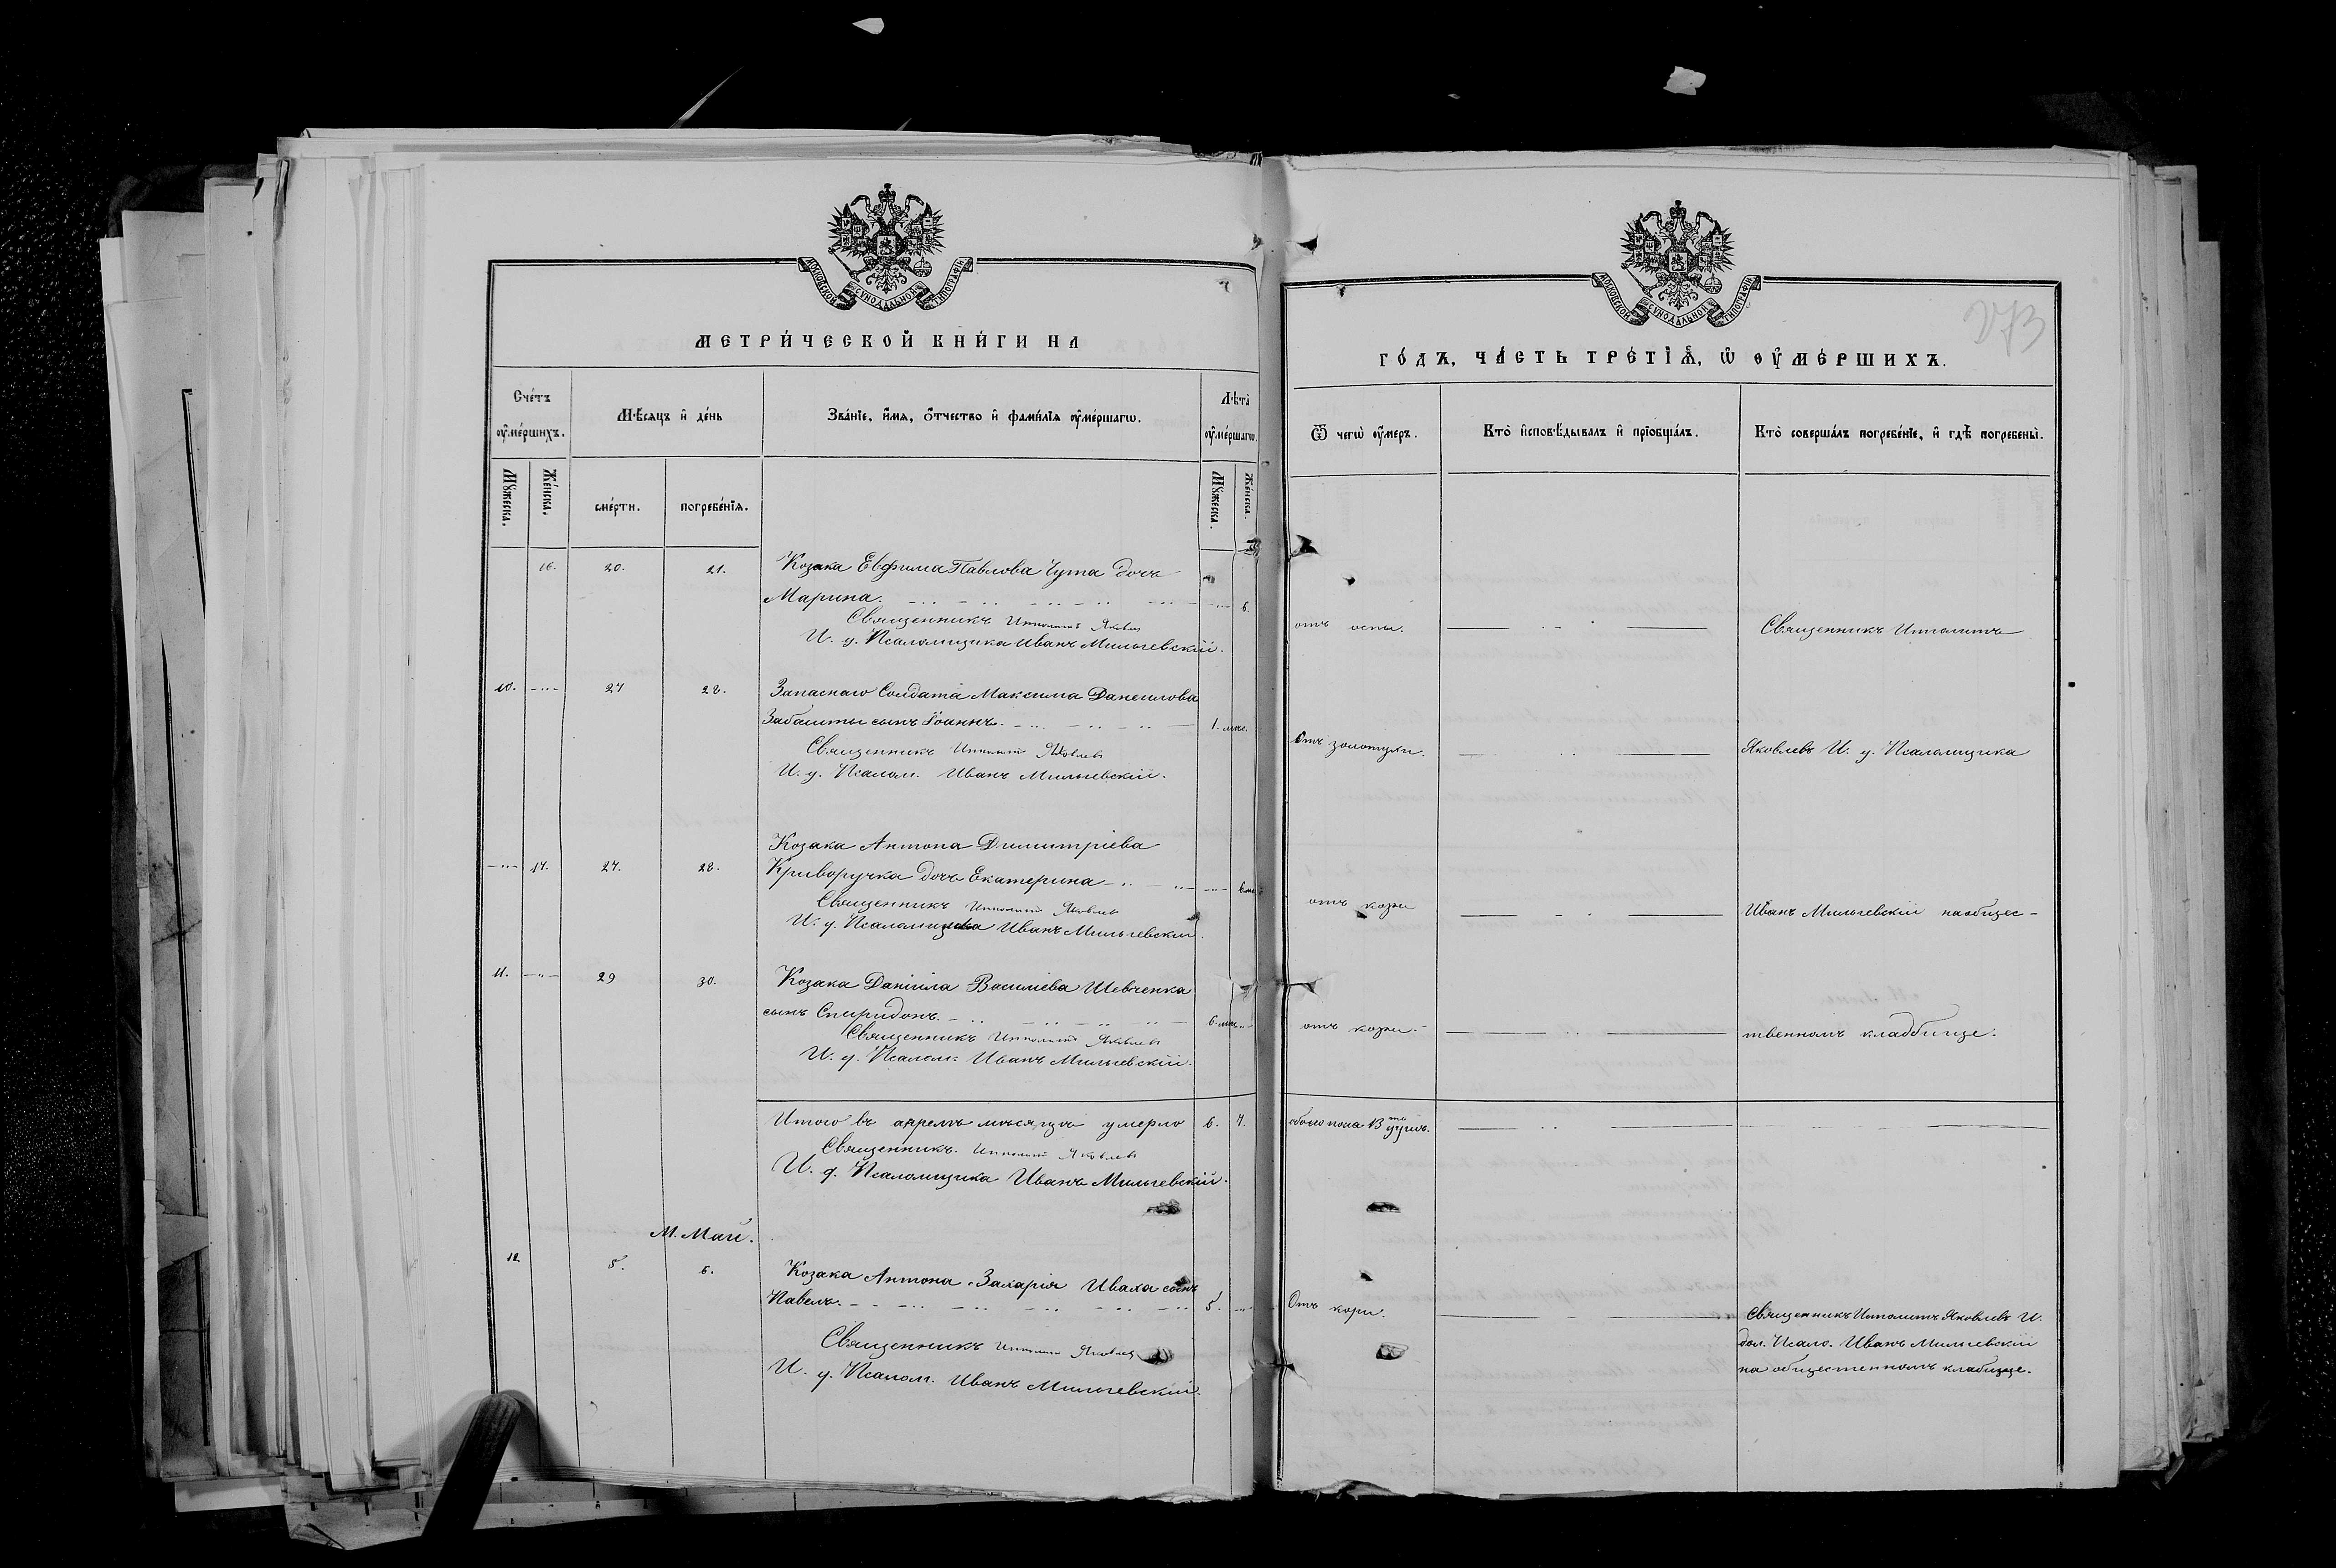 МОСКОВСКОЙ СѴНОДАЛЬНОЙ ТИПОГРАФІИ
МЕТРИ́ЧЕСКОЙ КНИ́ГИ НА
Сче́тъ оу҆ме́ршихъ.
Мѣ́сяцъ и҆ де́нь
Зва́нїе, и҆́мя, ѻ҆́тчество и҆ фами́лїя оу҆ме́ршагѡ.
Лѣ́та оу҆ме́ршагѡ.
Мꙋ́жеска.
Же́нска.
сме́рти.
погребе́нїя.
Мꙋ́жеска.
Же́нска.
16. 20. 21. Козака Евфима Павлова Чута дочь
Марина. 6.
Священникъ Ипполитъ Яковлевъ
И. д. Псаломщика Иванъ Мильчевскій.
10. 27 28. Запаснаго Солдата Максима Данеилова
Забашты сынъ Іоаннъ. 1. мѣс.
Священникъ Ипполитъ Яковлевъ
И. д. Псалом. Иванъ Мильчевскій.
Козака Антона Димитріева
17. 27. 28. Криворучка дочь Екатерина
Священникъ Ипполитъ Яковлевъ
И. д. Псаломщика Иванъ Мильчевскій.
11. 29 30. Козака Даніила Василіева Шевченка
сынъ Спиридонъ. 6. мѣс.
Священникъ Ипполитъ Яковлевъ
И. д. Псалом. Иванъ Мильчевскій.
Итого въ апрелѣ мѣсяцѣ умерло 6. 7.
Священникъ. Ипполитъ Яковлевъ
И. д. Псаломщика Иванъ Мильчевскій.
М. Май.
12. 5. 6. Козака Антона Захарія Иваха сынъ
Павелъ. 5.
Священникъ Ипполитъ Яковлевъ
И. д. Псалом. Иванъ Мильчевскій.
МОСКОВСКОЙ СѴНОДАЛЬНОЙ ТИПОГРАФІИ
273
ГО́ДЪ, ЧА́СТЬ ТРЕ́ТІѦ, Ѡ҆ ОУ҆МЕ́РШИХЪ.
Ѿ чегѡ̀ оу҆́меръ.
Кто̀ и҆сповѣ́дывалъ и҆ прїобща́лъ.
Кто̀ соверша́лъ погребе́нїе, и҆ гдѣ̀ погребены̀.
отъ оспы. Священникъ Ипполитъ
Отъ золотухи. Яковлевъ И. д. Псаломщика
отъ кори Иванъ Мильчевскій на общес-
отъ кори. твенномъ кладбище.
обоего пола 13 ть душъ.
Отъ кори. Священникъ Ипполитъ Яковлевъ И.
дол. Псало. Иванъ Мильчевскій
на общественномъ кладбище.